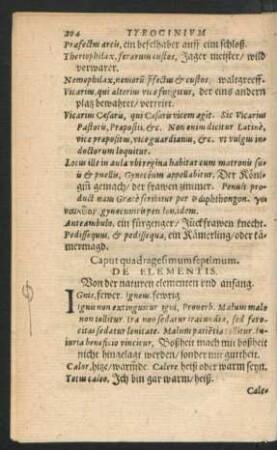 204 TYROCINIVM
Præfectus arcis, ein befelhaber auff ein schloß.
Theriophilax, ferarum custos, Jäger meister / wild
verwarer.
Nemophilax, nemorū p̄fectus & custos, waltgreeff.
Vicarius, qui alterius vice fungitur, der eins andern
platz bewahret / vertritt.
Vicarius Cæsaris, qui Cæsaris vicem agit. Sic Vicarius
Pastoris, Præpositi, &c. Non enim dicitur Latinè,
vice præpositus, vice guardianus, &c. vt vulgus in-
doctorum loquitur.
Locus ille in aula vbi regina habitat cum matronis su-
is & puellis, Gynecœum appellabitur, Der Köni-
gin gemach / der frawen zimmer. Penult. pro-
duct nam Græcè scribitur per diphthongon.
gynæconitis pen. long. idem.
Anteambulo, ein fürgenger / Juckfrawen knecht.
Pedissequus, & pedissequa, ein Kämerling / oder kä-
mermagd.
Caput quadragesimum septimum.
DE ELEMENTIS.
Von der naturen elementen vnd anfang.
IGnis, fewer. igneus, fewrig
Ignis non extinguitur igni, Proverb. Malum malo
non tollitur. ira non sedatur iracundia, sed fero-
citas sedatur lenitate. Malum patiētia tollitur. in-
iuria beneficio vincitur, Boßheit mach mit boßheit
nicht hingelagt werden / sonder mit guttheit.
Calor, hitze / warmde. Calere heiß oder warm seyn.
Totus caleo, Ich bin gar warm / heiß.
Cale-